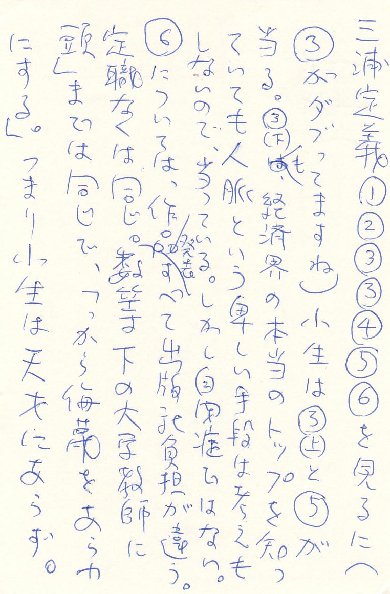 三浦定義①②③③④⑤⑥を見るに(
③がダブってますね)小生は③(上)と⑤が
当る。③(下)も経済界の本当のトップを知っ
ていても人脈という卑しい手段は考えも
しないので、当っている。しかし自閉症ではない。
⑥については、作品発表すべて出版社負担が違う。
定職なくは同じ。数等下の大学教師に
頭」までは同じで、「から侮蔑をあらわ
にする」。つまり小生は天才にあらず。